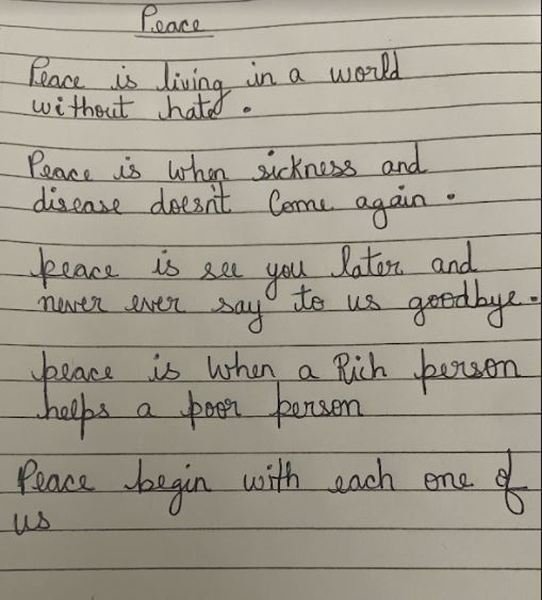 Peace
Peace is living in a world
without hate.
Peace is when sickness and
disease doesn't Come again.
peace is see you later and
never ever say to us goodbye.
peace is when a Rich person
helps a poor person
Peace begin with each one of
us